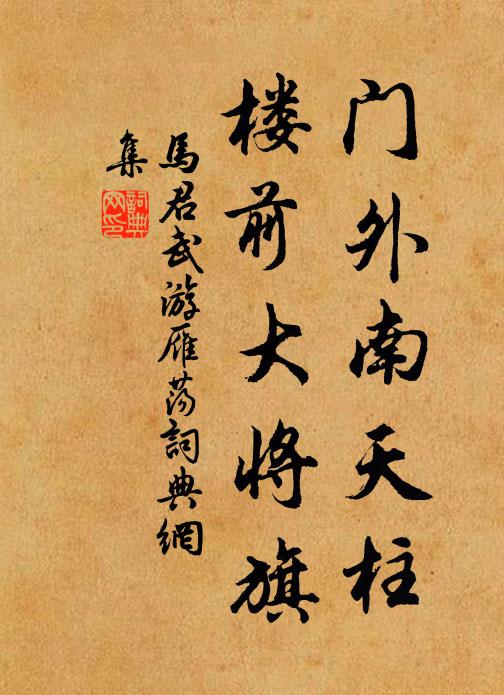 门外南天柱
楼前大将旗
馬君武游雁荡詞典網
集
詞典
网印